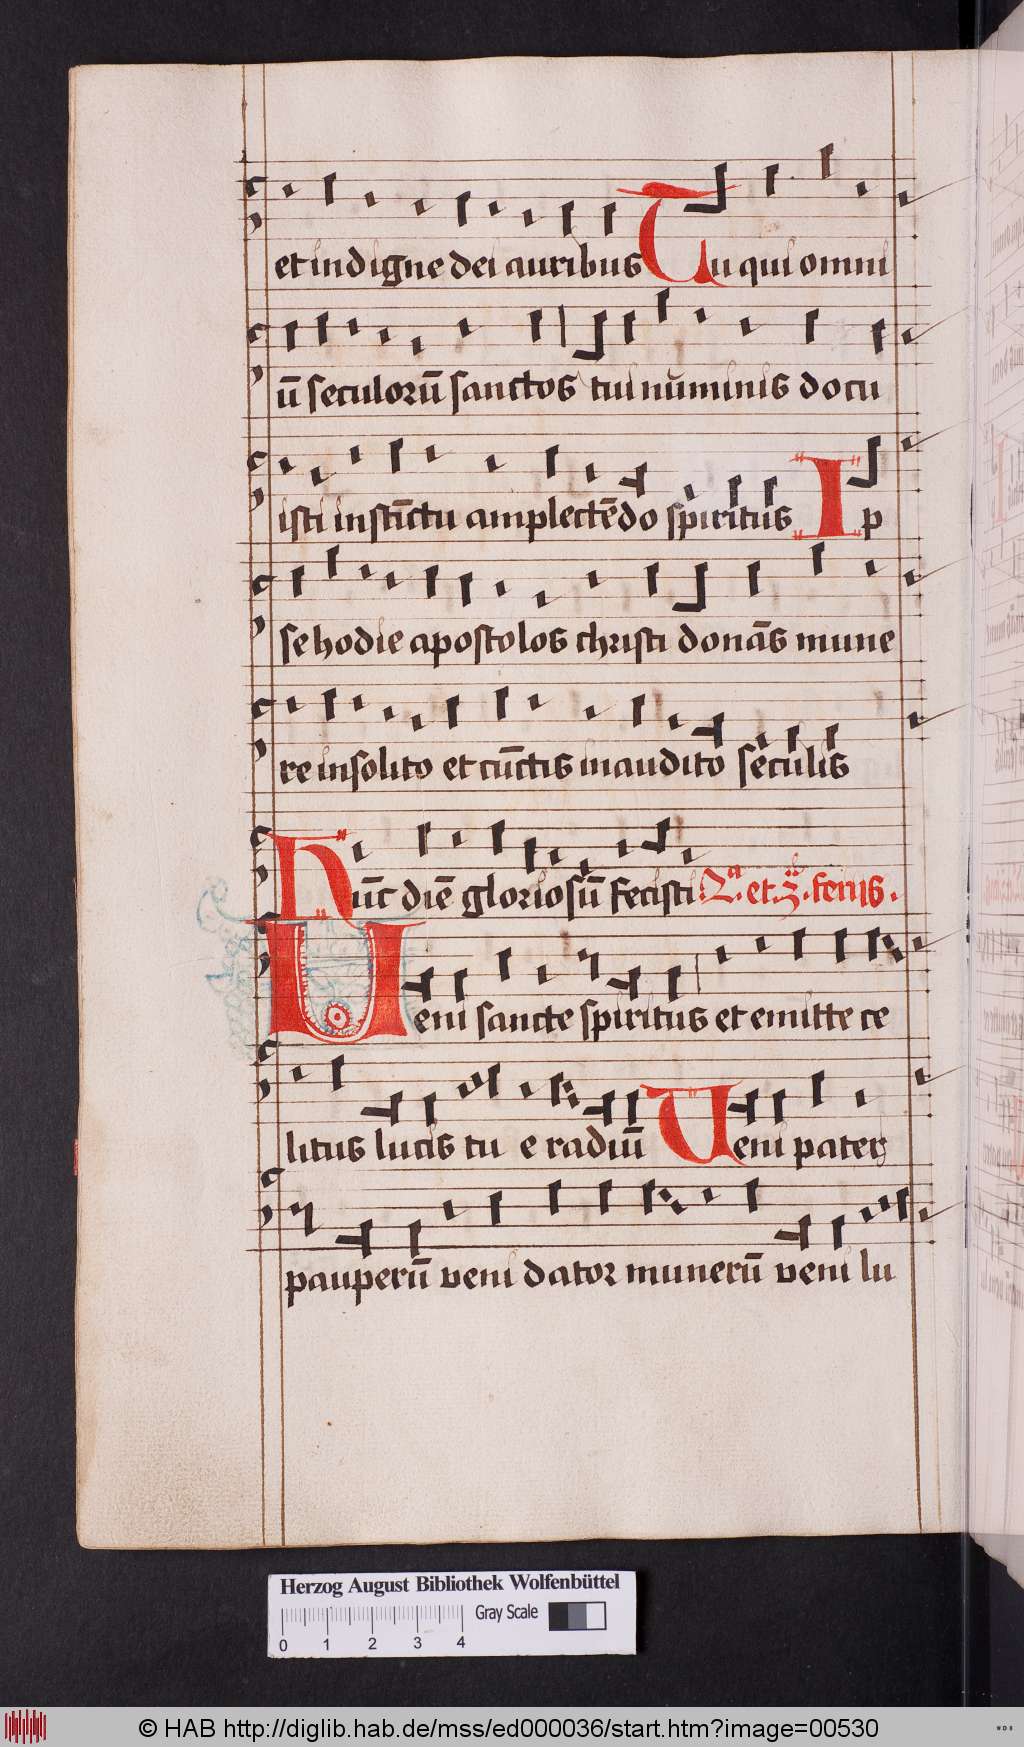 et indigne dei auribus Tu qui omni
ū seculorū sanctos tui nūminis docu
isti instīctu amplectēdo spiritus Ip
se hodie apostolos christi donās mune
re insolito et cūctis inaudito seculis
Hūc diē gloriosū fecisti et feriis.
Ueni sancte spiritus et emitte ce
litus lucis tu e radiū Veni pater
pauperū veni dator munerū veni lu
Herzog August Bibliothek Wolfenbüttel
Gray Scale
0 1 2 3 4
© HAB http://diglib.hab.de/mss/ed000036/start.htm?image=00530